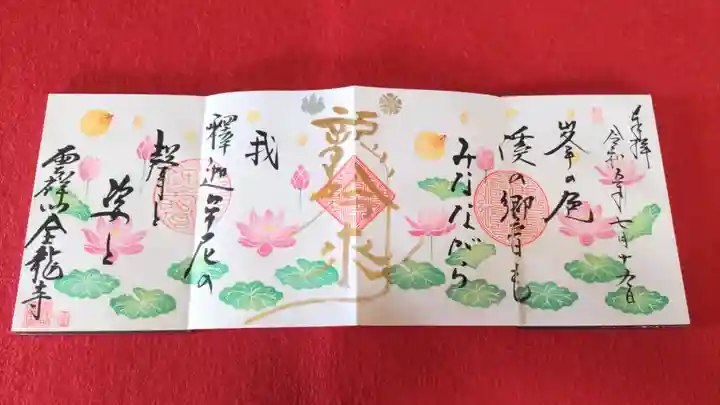 奉拝
令和五年七月十六日
峯の色
渓の響も
みなながら
我
釋迦牟尼の
聲と
姿と
金龍寺